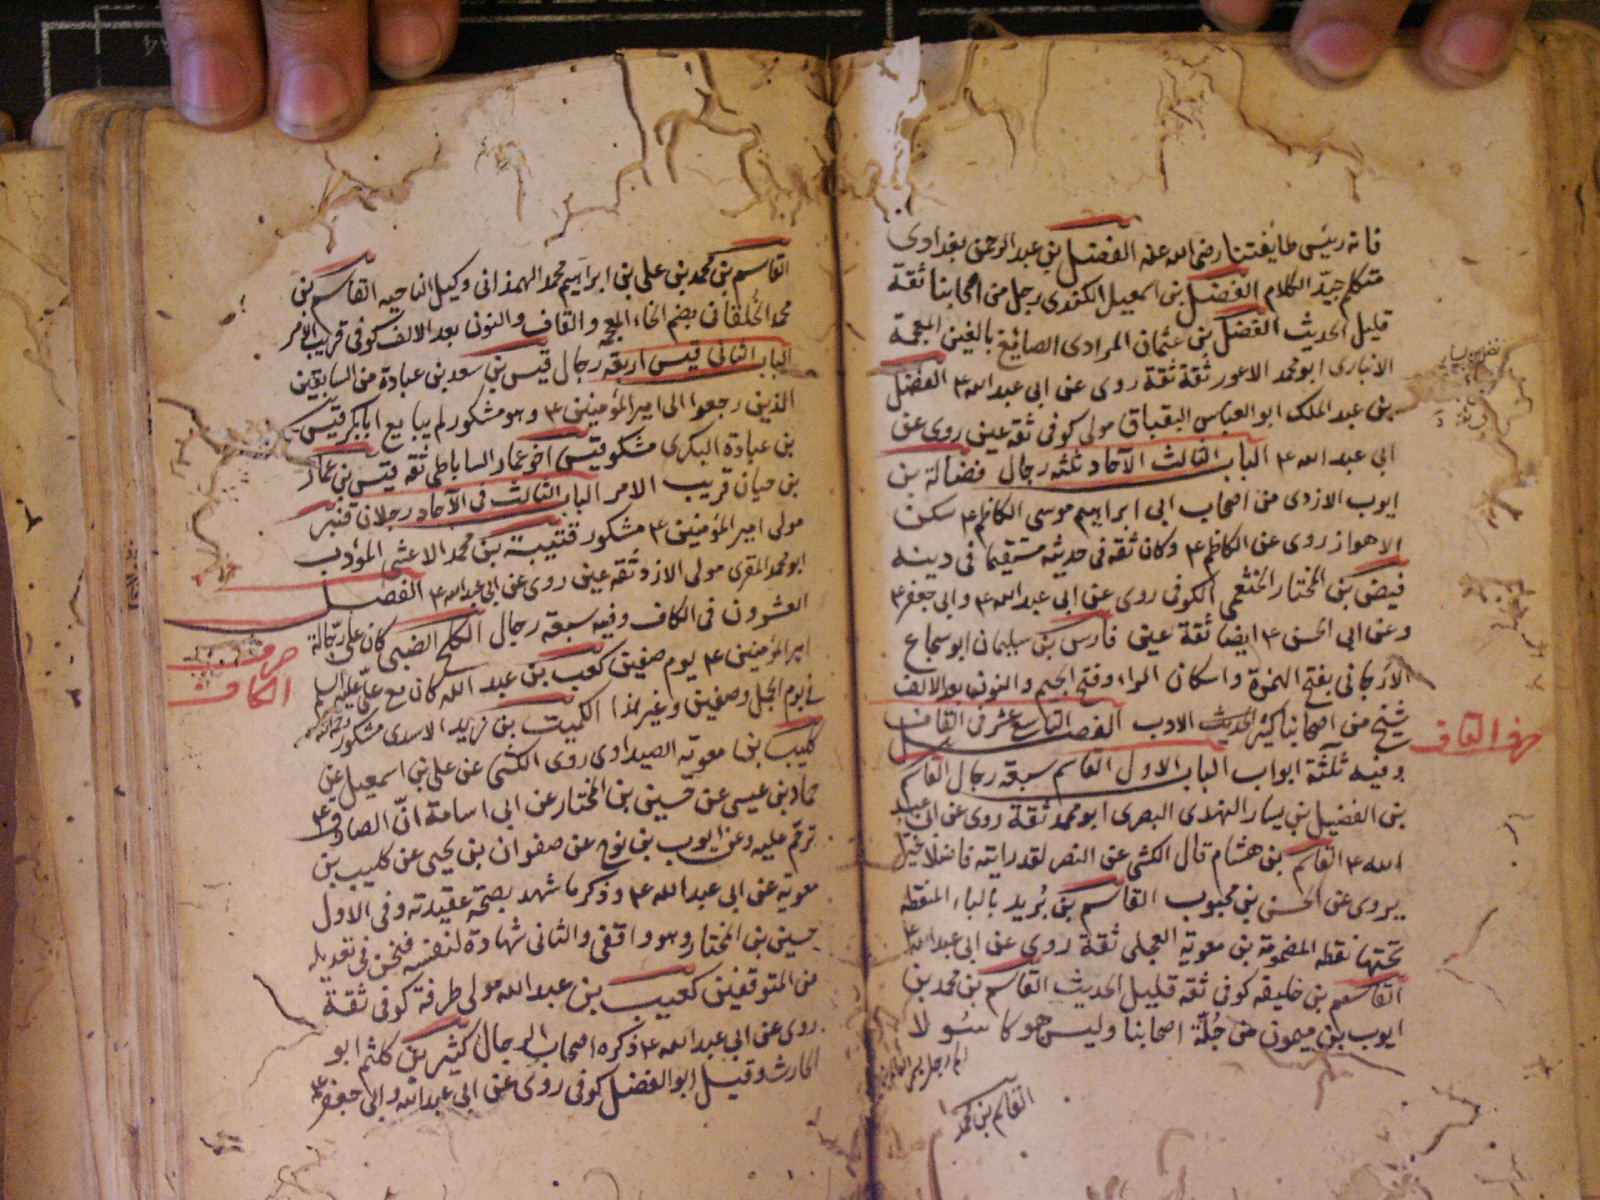 فانه رئيس طايفتنا رضى الله عنه الفضل بن عبد الرحمن بغدادى
متكلم جيد الكلام الفضل بن اسمعيل الكندى رجل من اصحابنا ثقة
قليل الحديث الفضل بن عثمان المرادى الصايغ بالغين المعجمة
الانبارى ابو محمد الاعور ثقة ثقة روى عن ابى عبد الله ع الفضل
بن عبد الملك ابو العباس البقباق مولى كوفى ثقة عين روى عن
ابى عبد الله ع الباب الثالث الآحاد ثلثه رجال فضالة بن
ايوب الازدى من اصحاب ابى ابراهيم موسى الكاظم ع سكن
الاهواز روى عن الكاظم ع وكان ثقه فى حديثه مستقيما فى دينه
فيض بن المختار الخثعمى الكوفى روى عن ابى عبد الله ع وابى جعفر ع
وعن ابى الحسن ع ايضا ثقة عين فارس بن سليمان ابو شجاع
الأرجانى بفتح الهمزة واسكان الراء وفتح الجيم والنون بعد الالف
شيخ من اصحابنا كثير الحديث الادب الفصل التاسع عشر فى القاف
حرف القاف
وفيه ثلثة ابواب الباب الاول القاسم سبعة رجال القاسم
بن الفضيل بن يسار النهدى البصرى ابو محمد ثقة روى عن ابى عبد
الله ع القاسم بن هشام قال الكشى عن النصر لقد رايته فاضلا خيرا
يروى عن الحسن بن محبوب القاسم بن بُريد بالباء المنقطة
تحتها نقطه المضمومة بن معوية العجلى ثقة روى عن ابى عبد الله ع
القاسم بن خليفه كوفى ثقه قليل الحديث القاسم بن محمد بن
ايوب بن ميمون من جُلّة اصحابنا وليس هو كاسولا
القاسم بن محمد
القاسم بن محمد بن على بن ابراهيم محمد الهمذانى وكيل الناحيه القاسم بن
محمد الخُلقانى بضم الخاء المعجمه والقاف والنون بعد الالف كوفى قريب الامر
الباب الثانى قيس اربعه رجال قيس بن سعد بن عبادة من السابقين
الذين رجعوا الى امير المؤمنين ع وهو مشكور لم يبايع ابا بكر قيس
بن عبادة البكرى مشكور قيس اخو عمار الساباطى ثقه قيس بن عمار
بن حيان قريب الامر الباب الثالث فى الآحاد رجلان قنبر
مولى امير المؤمنين ع مشكور قتيبة بن محمد الاعشى المؤدب
ابو محمد المقرى مولى الازد ثقه عين روى عن ابى عبد الله ع الفصل
العشرون فى الكاف وفيه سبعه رجال الكلح الضبى كان على رجّالة
حرف الكاف
امير المؤمنين ع يوم صفين كعب بن عبد الله كان مع على عليه السلم
فى يوم الجمل وصفين وغير هذا الكميت بن زيد الاسدى مشكور
كليب بن معوية الصيداوى روى الكشى عن على بن اسمعيل عن
حماد بن عيسى عن حسين بن المختار عن ابى اسامة انّ الصادق ع
ترحّم عليه وعن ايوب بن نوح عن صفوان بن يحيى عن كليب بن
معوية عن ابى عبد الله ع وذكر ما شهد بصحّة عقيدته وفى الاول
حسين بن المختار وهو واقفى والثانى شهادة لنفسه فنحن فى تعديله
من المتوقفين كعيب بن عبد الله مولى طرفة كوفى ثقة
روى عن ابى عبد الله ع ذكره اصحاب الرجال كثير بن كلثم ابو
الحارث وقيل ابو الفضل كوفى روى عن ابى عبد الله وابى جعفر ع